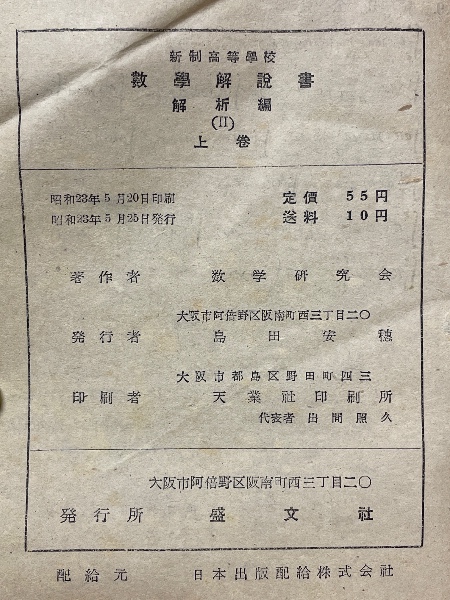 新制高等學校
數學解說書
解析編
(II)
上卷
昭和23年5月20日印刷 定價 55円
昭和23年5月25日発行 送料 10円
著作者 数学研究会
大阪市阿倍野区阪南町西三丁目二〇
発行者 島田安穂
大阪市都島区野田町四三
印刷者 天業社印刷所
代表者 出間照久
大阪市阿倍野区阪南町西三丁目二〇
発行所 盛文社
配給元 日本出版配給株式会社